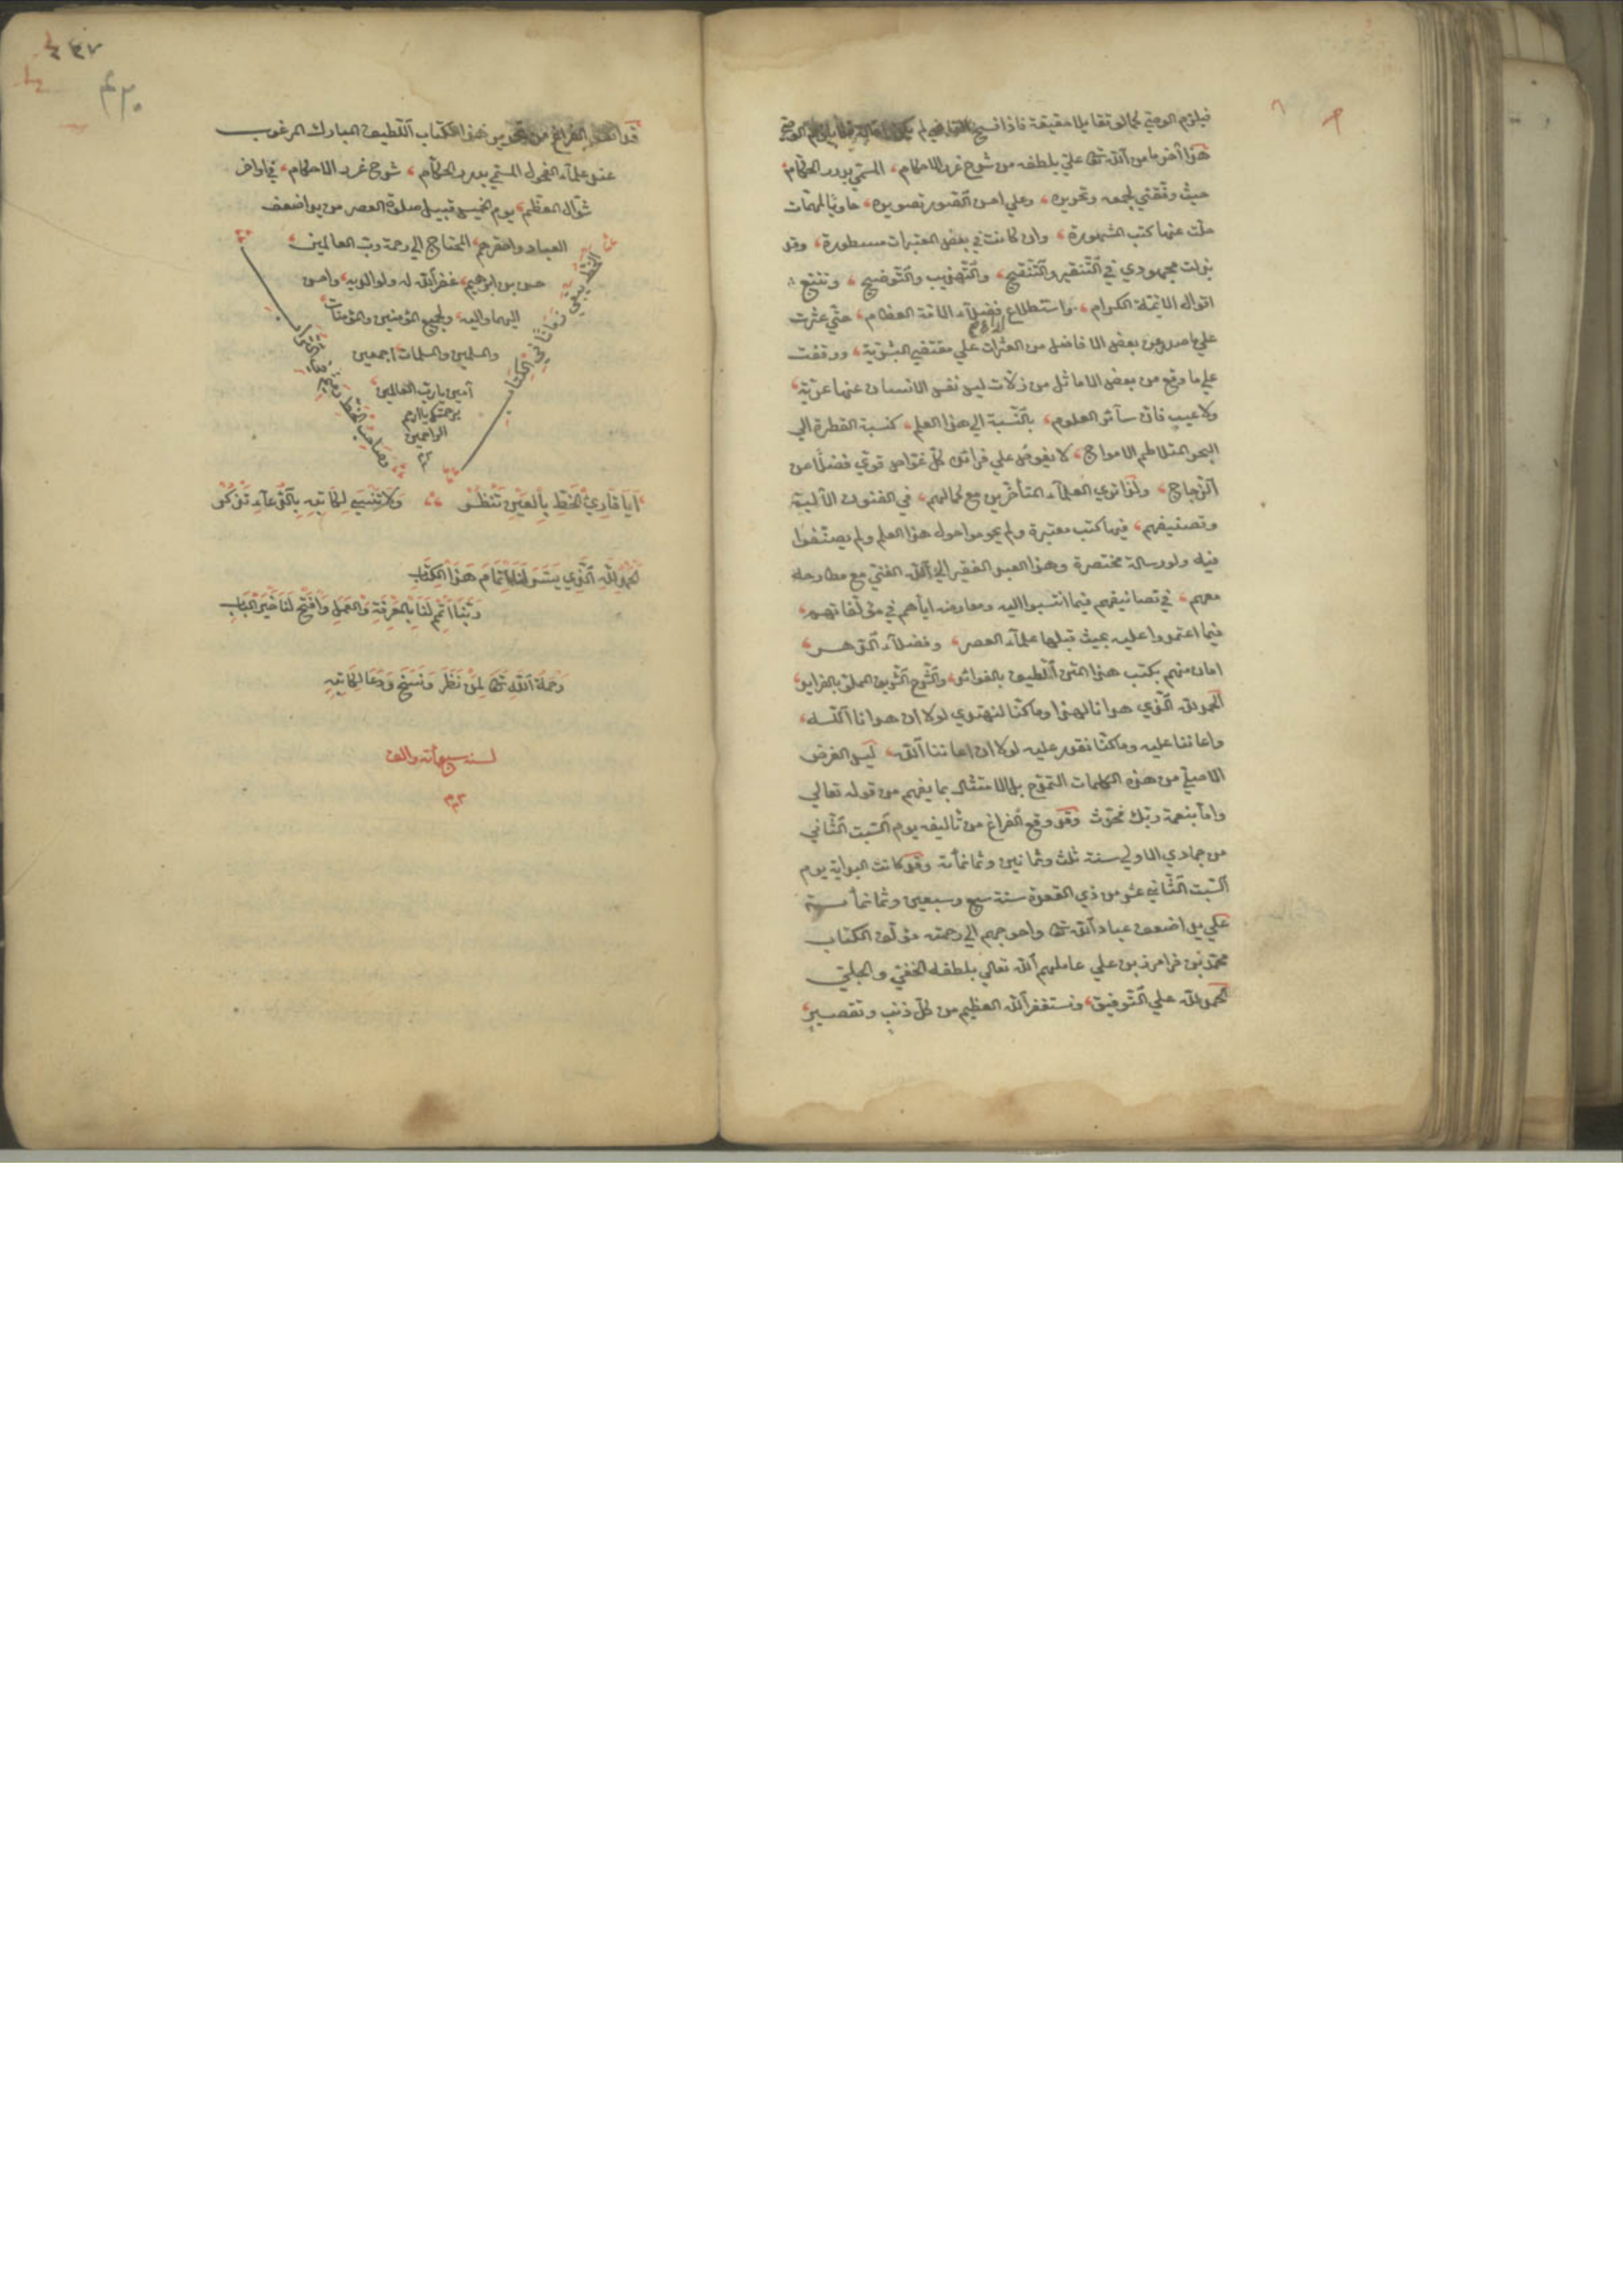 فيلزم الوصي كما لو تقايلا حقيقة فاذا فسخ القاضي لم يكن اقالة فلا يلزم الوصي
هذا آخر ما من الله تعالى علي بلطفه من شرح غرر الاحكام، المسمى بدرر الحكام
حيث وفقني لجمعه وتحريره، وعلى احسن الصور تصويره، حاويا لمهمات
خلت عنها كتب المشهورة، وان كانت في بعض المعتبرات مسطورة، وقد
بذلت مجهودي في التنقير والتنقيح، والتهذيب والتوضيح، وتتبع
اقوال الائمة الكرام، واستطلاع فضلاء الائمة العظام، حتى عثرت
على ما صدر عن بعض الافاضل من العثرات على مقتضى البشرية، ووقفت
على ما وقع من بعض الاماثل من زلات ليس نفس الانسان عنها عرية
ولا عيب فان سائر العلوم، بالنسبة الى هذا العلم، كنسبة القطرة الى
البحر المتلاطم الامواج، لا يغوص على فرائده كل غواص قوي فضلا عن
الزجاج، ولذا ترى العلماء المتأخرين مع كمالهم، في الفنون الآلية
وتصنيفهم، فيها كتب معتبرة ولم يحوموا حول هذا العلم ولم يصنفوا
فيه ولو رسالة مختصرة وهذا العبد الفقير الى الله الغني مع مطارحه
معهم، في تصانيفهم فيما انتسبوا اليه ومعارضه اياهم في مؤلفاتهم،
فيما اعتمدوا عليه بحيث قبلها علماء العصر، وفضلاء الدهر
امان منهم بكتب هذا المتن اللطيف بالفوائد، والشرح الشريف المملو بالفرايد
الحمد لله الذي هدانا لهذا وما كنا لنهتدي لولا ان هدانا الله،
واعاننا عليه وما كنا نقدر عليه لولا ان اعاننا الله، ليس الغرض
الاصلي من هذه الكلمات التمدح بل الامتثال بما يفهم من قوله تعالى
واما بنعمة ربك فحدث وقد وقع الفراغ من تأليفه يوم السبت الثاني
من جمادي الاولى سنة ثلث وثمانين وثمانمائة وقد كانت البداية يوم
السبت الثاني عشر من ذي القعدة سنة سبع وسبعين وثمانمائة
على يد اضعف عباد الله تعالى واحوجهم الى رحمته مؤلف الكتاب
محمد بن فرامرز بن علي عاملهم الله تعالى بلطفه الخفي والجلي
الحمد لله على التوفيق، ونستغفر الله العظيم من كل ذنب وتقصير
٤٣٧
٤٢٠
قد الفراغ من تحرير هذا الكتاب اللطيف المبارك المرغوب
عند علماء الفحول المسمى بدرر الحكام، شرح غرر الاحكام، في اواخر
شوال المعظم، يوم الخميس قبيل صلوة العصر من يد اضعف
العباد واحقرهم، المحتاج الى رحمة رب العالمين،
حسن بن ابرهيم، غفر الله له ولوالديه، واحسن
اليهما واليه، ولجميع المؤمنين والمؤمنات
والمسلمين والمسلمات اجمعين
آمين يا رب العالمين
برحمتك يا ارحم
الراحمين
الخط يبقى زمانا في الكتاب
وصاحب الخط تحت
ايا قارئ الخط بالعين تنظر ولا تنسى لكاتبه بالدعاء تذكر
الحمد لله الذي يسر لنا اتمام هذا الكتاب
ربنا اتمم لنا بالمعرفة والعمل وافتح لنا خير الباب
رحمة الله تعالى لمن نظر ونسخ ودعا لكاتبه
لسنه سبع مائه والف